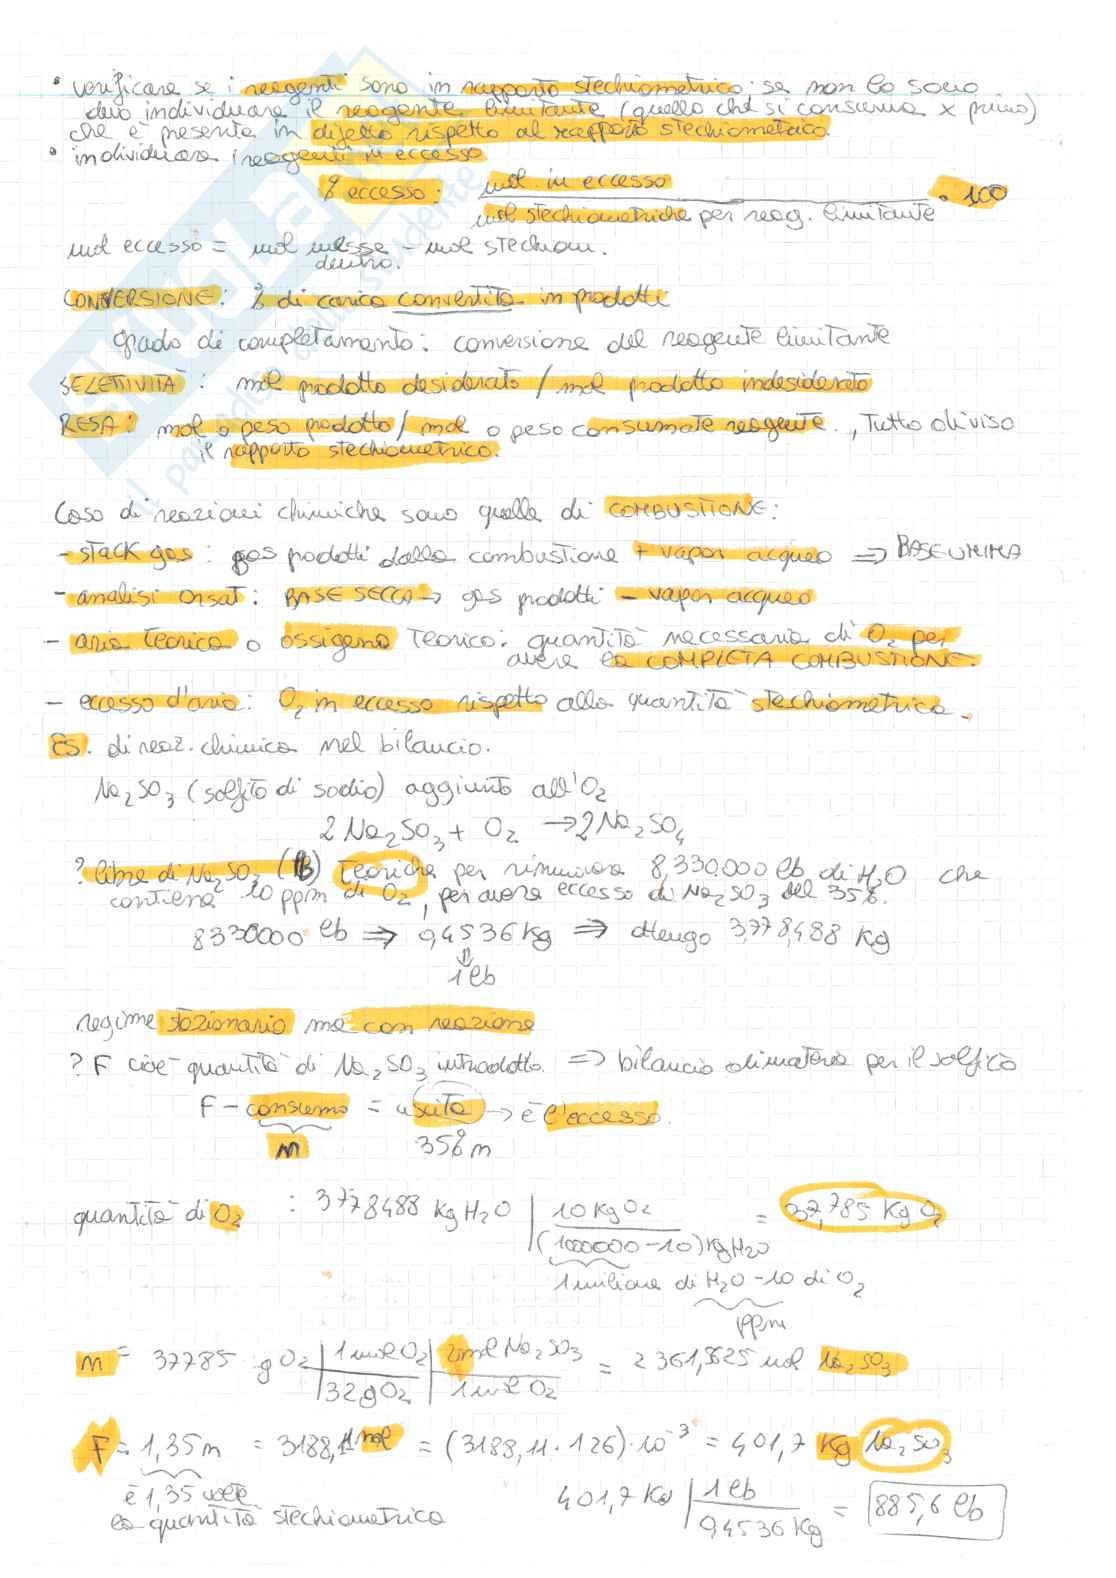 • verificare se i reagenti sono in rapporto stechiometrico; se non lo sono
devo individuare il reagente limitante (quello che si consuma x primo)
che è presente in difetto rispetto al rapporto stechiometrico.
• individuare i reagenti in eccesso
% eccesso: mol. in eccesso / mol stechiometriche per reag. limitante • 100
mol eccesso = mol messe dentro. - mol stechiom.
CONVERSIONE: % di carica convertita in prodotti
grado di completamento: conversione del reagente limitante
SELETTIVITÀ: mol prodotto desiderato / mol prodotto indesiderato
RESA: mol o peso prodotto / mol o peso consumate reagente., Tutto diviso
il rapporto stechiometrico.
Caso di reazioni chimiche sono quelle di COMBUSTIONE:
- stack gas: gas prodotti dalla combustione + vapor acqueo ⇒ BASE UMIDA
- analisi orsat: BASE SECCA → gas prodotti - vapor acqueo
- aria teorica o ossigeno Teorico: quantità necessaria di O2 per
avere la COMPLETA COMBUSTIONE.
- eccesso d'aria: O2 in eccesso rispetto alla quantità stechiometrica.
ES. di reaz. chimica nel bilancio.
Na2SO3 (solfito di sodio) aggiunto all'O2
2Na2SO3 + O2 → 2Na2SO4
? libre di Na2SO3 (lb) teoriche per rimuovere 8,330.000 lb di H2O che
contiene 10 ppm di O2, per avere eccesso di Na2SO3 del 35%.
8330000 lb ⇒ 0,4536 Kg ⇒ ottengo 3,778,488 Kg
⇓
1 lb
regime stazionario ma con reazione
? F cioè quantità di Na2SO3 introdotta. ⇒ bilancio di materia per il solfito
F - consumo = uscita → è l'eccesso.
m 35% m
quantità di O2 : 3778488 Kg H2O | 10 Kg O2 / (1000000 - 10) Kg H2O = 37,785 Kg O2
1 milione di H2O - 10 di O2
ppm
m = 37785 g O2 | 1 mol O2 / 32 g O2 | 2 mol Na2SO3 / 1 mol O2 = 2361,5625 mol Na2SO3
F = 1,35 m = 3188,11 mol = (3188,11 · 126) · 10⁻³ = 401,7 Kg Na2SO3
è 1,35 volte
la quantità stechiometrica
401,7 Kg | 1 lb / 0,4536 Kg = 885,6 lb